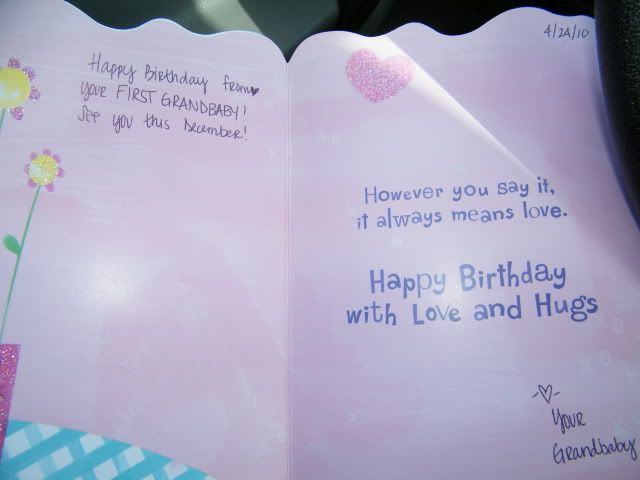 Happy Birthday from♥
your FIRST GRANDBABY!
See you this December!
4/24/10
However you say it,
it always means love.
Happy Birthday
with Love and Hugs
-♡-
Your
Grandbaby